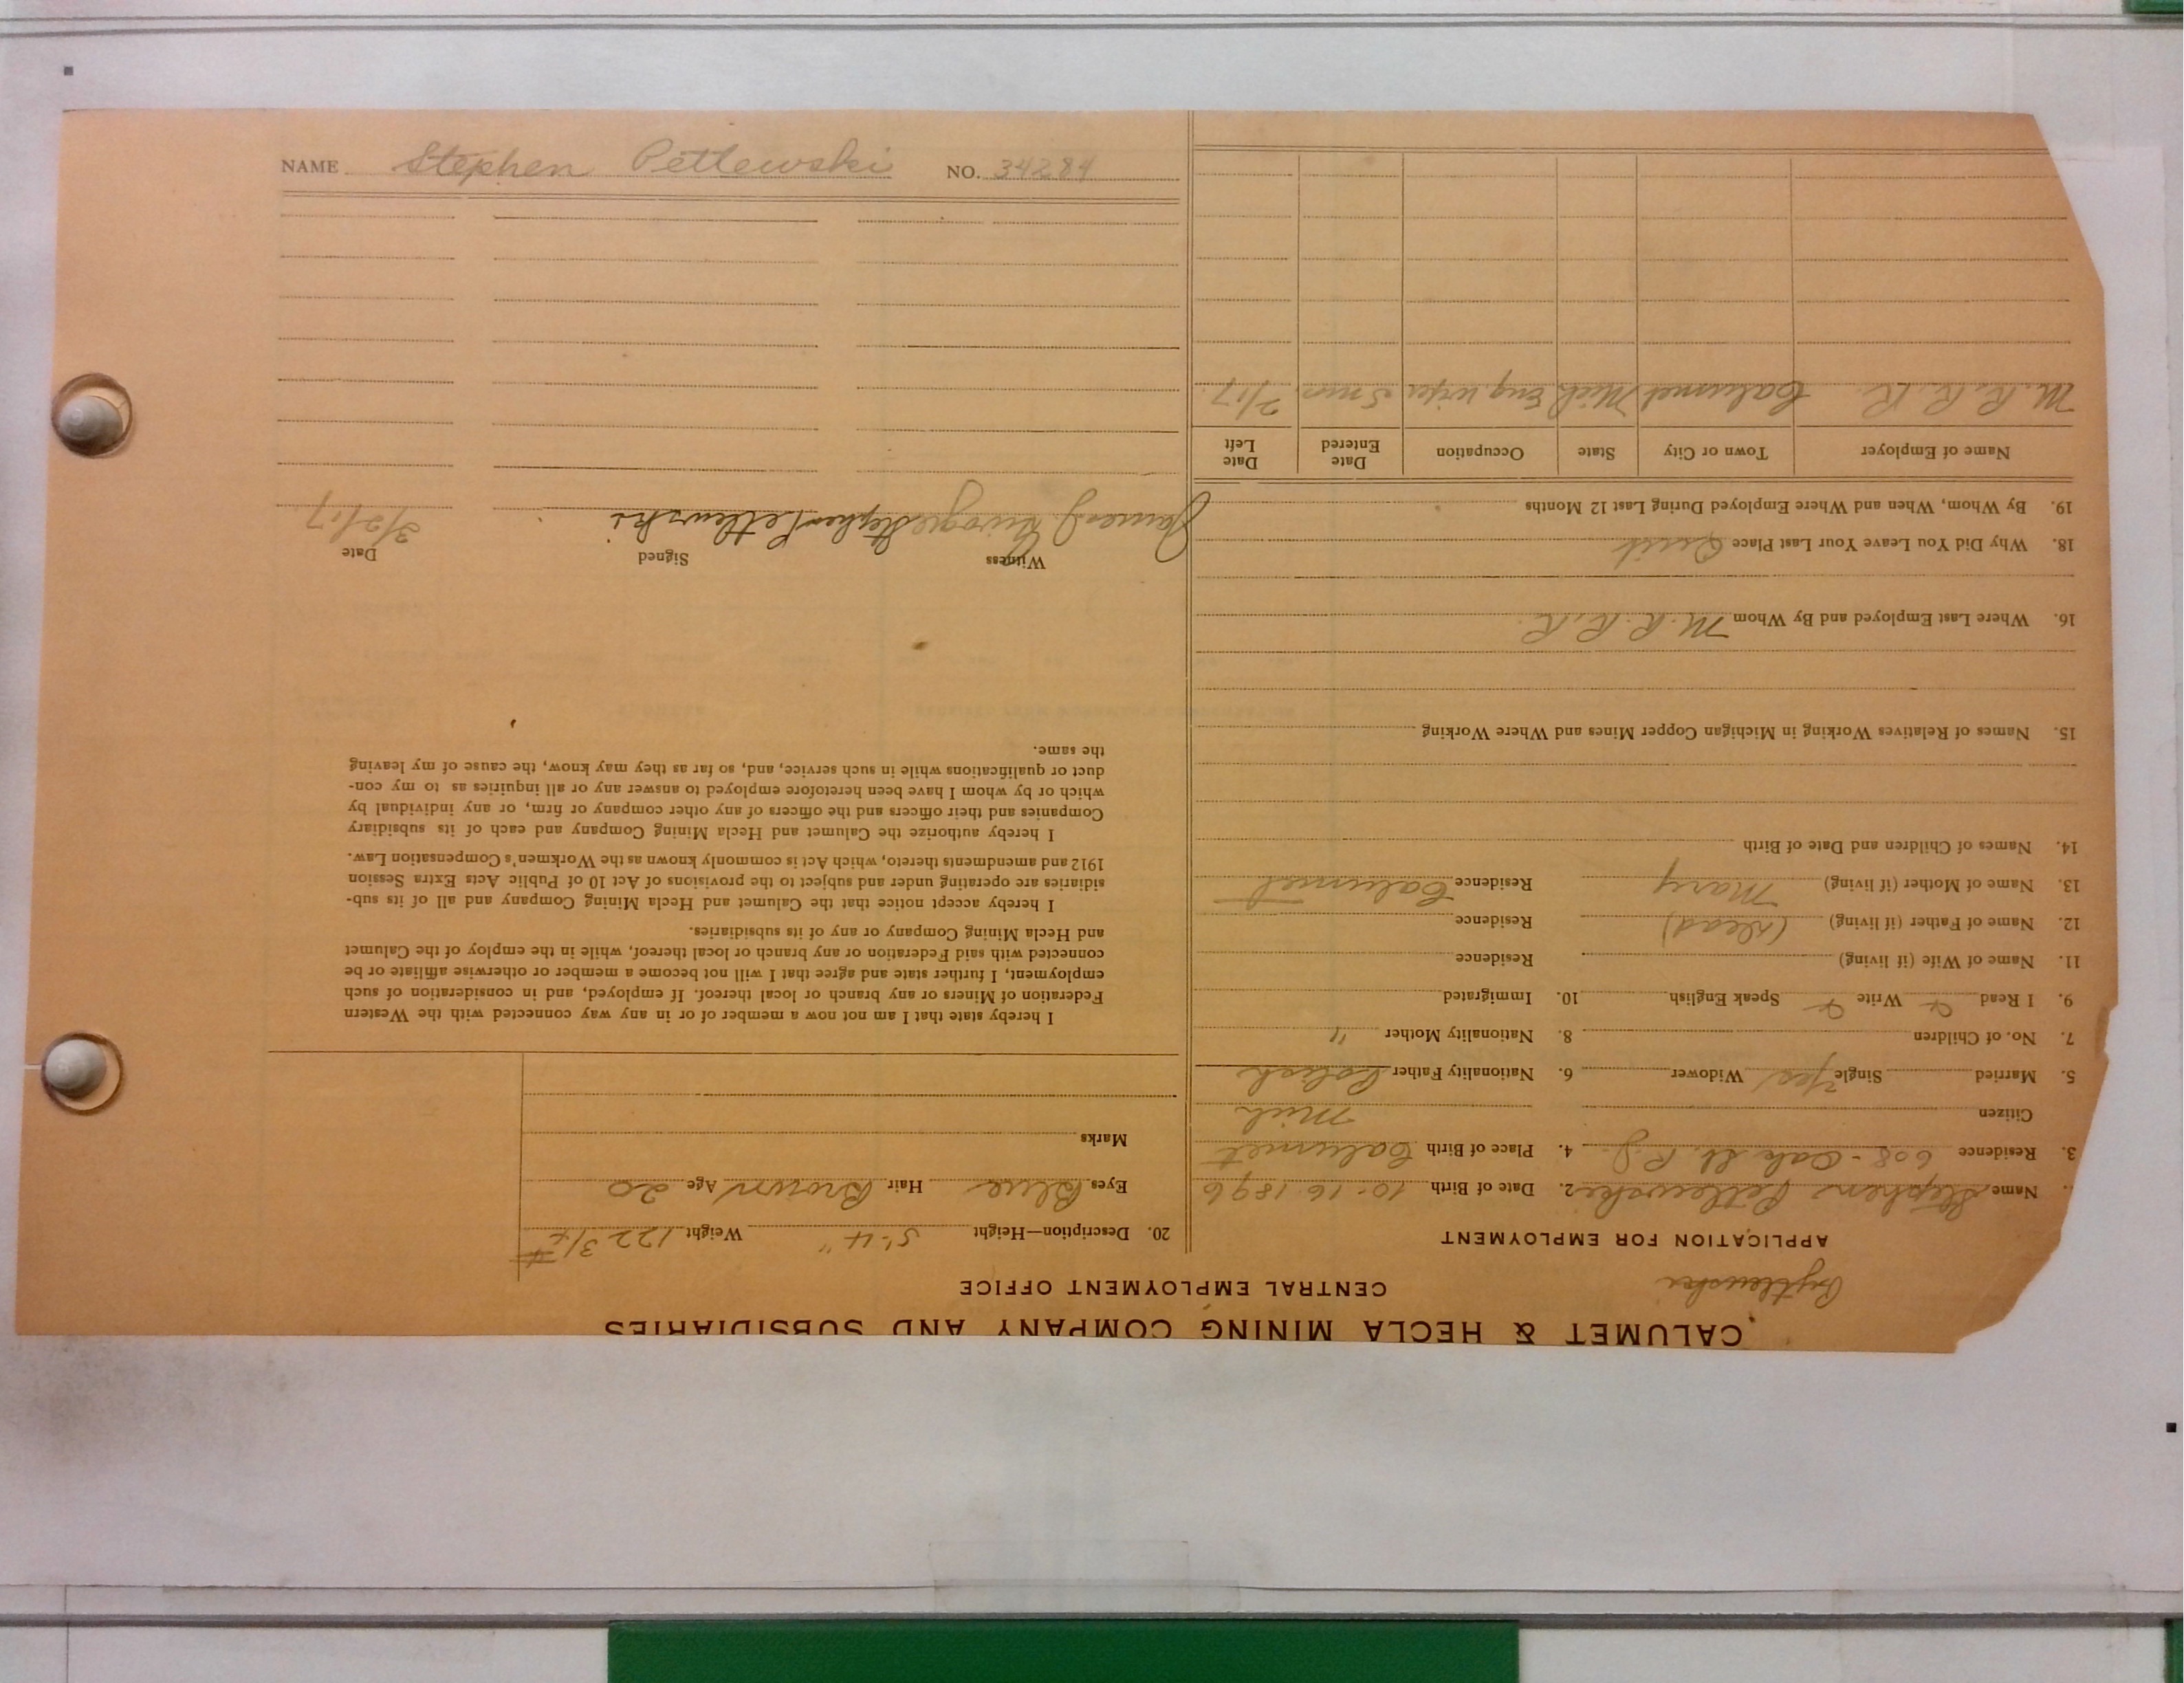 NAME Stephen Petlewski NO. 34284
CALUMET & HECLA MINING COMPANY AND SUBSIDIARIES
CENTRAL EMPLOYMENT OFFICE
Pytlewski
APPLICATION FOR EMPLOYMENT
Name Stephen Petlewski 2. Date of Birth 10-16-1896
3. Residence 608-Oak St. R.J. 4. Place of Birth Calumet
Citizen Mich
5. Married Single Yes Widower 6. Nationality Father Polish
7. No. of Children 8. Nationality Mother "
9. I Read Write Speak English 10. Immigrated
11. Name of Wife (if living) Residence
12. Name of Father (if living) (dead) Residence
13. Name of Mother (if living) Mary Residence Calumet
14. Names of Children and Date of Birth
15. Names of Relatives Working in Michigan Copper Mines and Where Working
16. Where Last Employed and By Whom M.R.R.R.
18. Why Did You Leave Your Last Place Quit
19. By Whom, When and Where Employed During Last 12 Months
Name of Employer Town or City State Occupation Date Entered Date Left
M.R.R.R. Calumet Mich Eng. wiper 5 mos. 2/17
20. Description—Height 5'-4" Weight 122 3/4 #
Eyes Blue Hair Brown Age 20
Marks
I hereby state that I am not now a member of or in any way connected with the Western
Federation of Miners or any branch or local thereof. If employed, and in consideration of such
employment, I further state and agree that I will not become a member or otherwise affiliate or be
connected with said Federation or any branch or local thereof, while in the employ of the Calumet
and Hecla Mining Company or any of its subsidiaries.
I hereby accept notice that the Calumet and Hecla Mining Company and all of its sub-
sidiaries are operating under and subject to the provisions of Act 10 of Public Acts Extra Session
1912 and amendments thereto, which Act is commonly known as the Workmen's Compensation Law.
I hereby authorize the Calumet and Hecla Mining Company and each of its subsidiary
Companies and their officers and the officers of any other company or firm, or any individual by
which or by whom I have been heretofore employed to answer any or all inquiries as to my con-
duct or qualifications while in such service, and, so far as they may know, the cause of my leaving
the same.
Witness Signed Date
James J. Stephen Petlewski 3/2/17